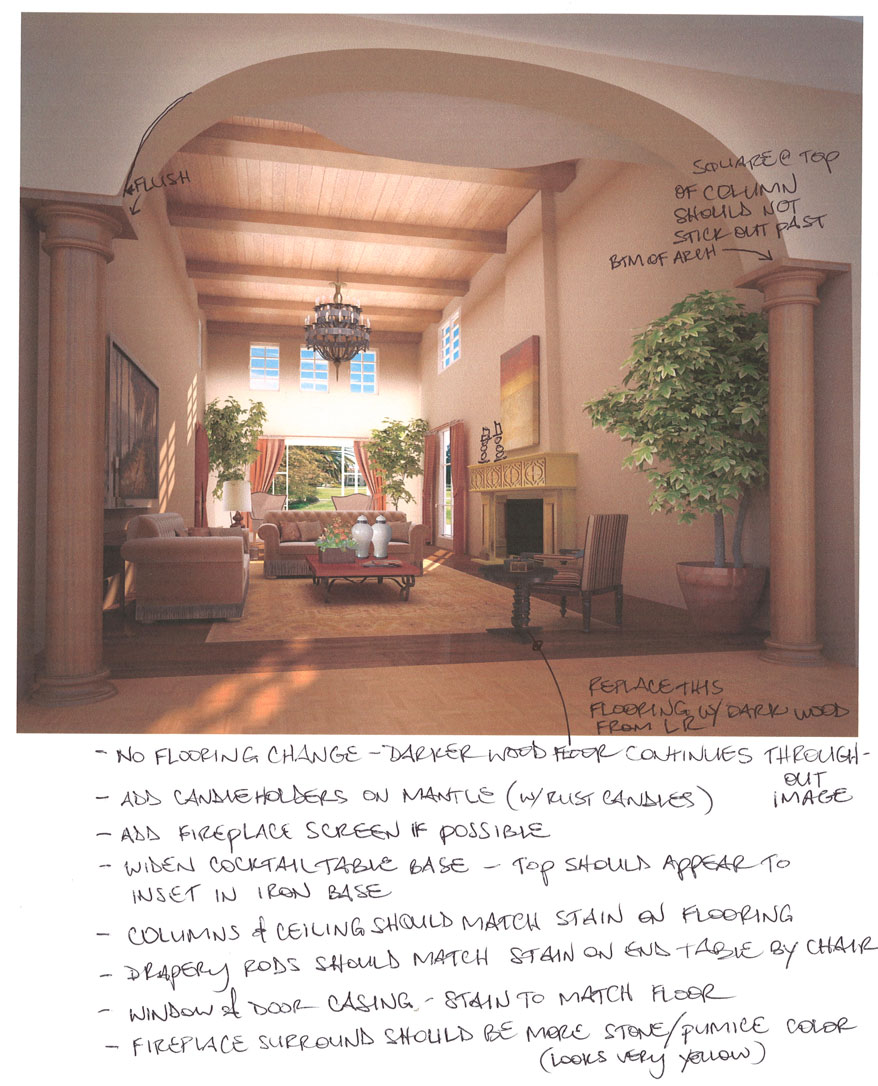 FLUSH
SQUARE @ TOP
OF COLUMN
SHOULD NOT
STICK OUT PAST
BTM OF ARCH
REPLACE THIS
FLOORING W/ DARK WOOD
FROM LR
- NO FLOORING CHANGE - DARKER WOOD FLOOR CONTINUES THROUGH-
OUT
IMAGE
- ADD CANDLEHOLDERS ON MANTLE (W/ RUST CANDLES)
- ADD FIREPLACE SCREEN IF POSSIBLE
- WIDEN COCKTAIL TABLE BASE - TOP SHOULD APPEAR TO
INSET IN IRON BASE
- COLUMNS & CEILING SHOULD MATCH STAIN ON FLOORING
- DRAPERY RODS SHOULD MATCH STAIN ON END TABLE BY CHAIR
- WINDOW & DOOR CASING - STAIN TO MATCH FLOOR
- FIREPLACE SURROUND SHOULD BE MORE STONE/PUMICE COLOR
(LOOKS VERY YELLOW)